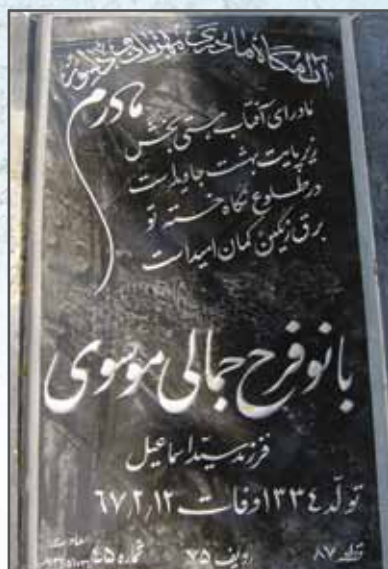 آرامگاه مادری مهربان و دلسوز
مادرم
مادر ای آفتاب هستی بخش
زیر پایت بهشت جاوید است
در طلوع نگاه خسته تو
برق رنگین کمان امید است
بانو فرح جمالی موسوی
فرزند سید اسماعیل
تولد ۱۳۳۴ وفات ۶۷٫۲٫۱۲
قطعه ۸۷ ردیف ۷۵ شماره ۴۵